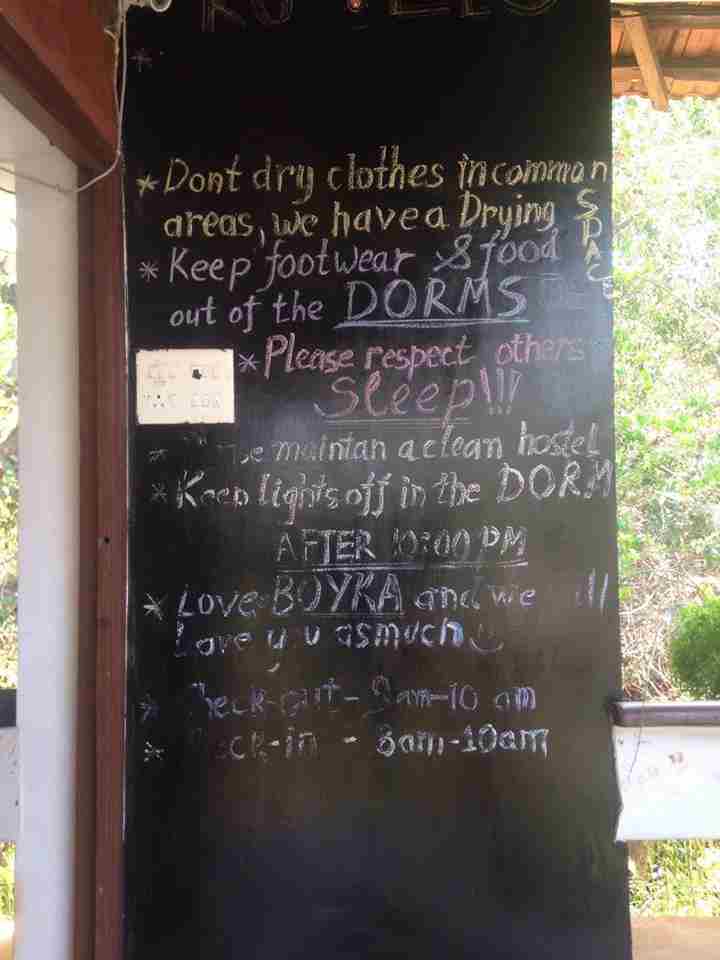 * Dont dry clothes in comman
areas, we have a Drying SPACE
* Keep footwear & food
out of the DORMS
* Please respect others
Sleep!!!
* maintan a clean hostel
* Keep lights off in the DORM
AFTER 10:00 PM
* Love BOYKA and we
Love you as much
* Check-out - 9am-10 am
* Check-in - 8am-10am